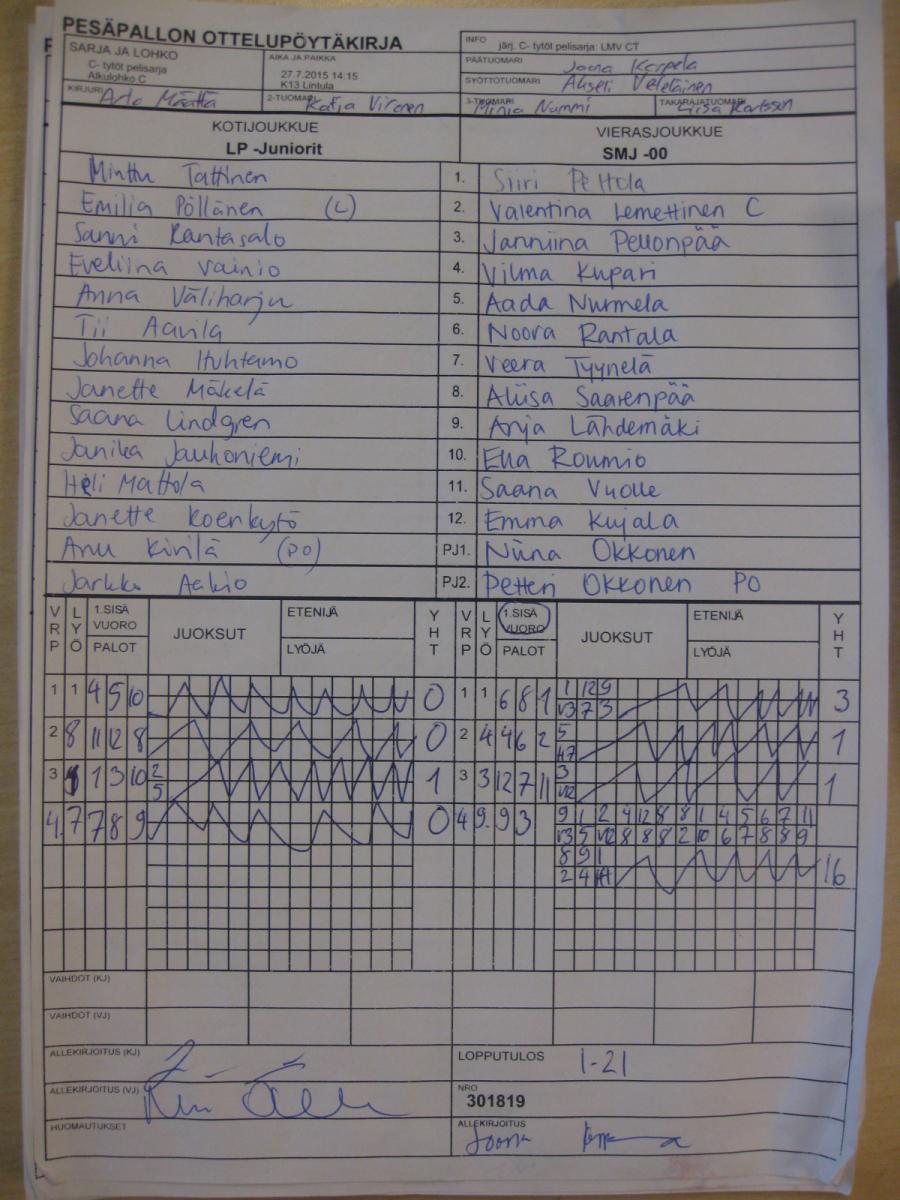 PESÄPALLON OTTELUPÖYTÄKIRJA
SARJA JA LOHKO
C- tytöt pelisarja
Alkulohko C
AIKA JA PAIKKA
27.7.2015 14:15
K13 Lintula
INFO
järj. C- tytöt pelisarja: LMV CT
PÄÄTUOMARI Joona Korpela
SYÖTTÖTUOMARI
KIRJURI Arto Määttä
2-TUOMARI Katja Vironen
3-TUOMARI Minja Nummi
TAKARAJATUOMARI
KOTIJOUKKUE
LP -Juniorit
VIERASJOUKKUE
SMJ -00
Minttu Tattinen 1. Siiri Peltola
Emilia Pöllänen (L) 2. Valentina Lemettinen C
Sanni Rantasalo 3. Janniina Pellonpää
Eveliina Vainio 4. Vilma Kupari
Anna Väliharju 5. Aada Nurmela
Tii Aavila 6. Noora Rantala
Johanna Huhtamo 7. Veera Tyynelä
Janette Mäkelä 8. Aliisa Saarenpää
Saana Lindgren 9. Anja Lähdemäki
Janika Jauhoniemi 10. Ella Roumio
Heli Mattola 11. Saana Vuolle
Janette Koenkytö 12. Emma Kujala
Anu Kivilä (PO) PJ1. Niina Okkonen
Jarkko Aakio PJ2. Petteri Okkonen PO
VRP LYÖ 1.SISÄ VUORO PALOT JUOKSUT ETENIJÄ LYÖJÄ YHT VRP LYÖ 1.SISÄ VUORO PALOT JUOKSUT ETENIJÄ LYÖJÄ YHT
1 1 4 5 10 0 1 1 6 8 1 1 12 9 3
V3 7 3
2 8 11 12 8 0 2 4 4 6 2 5 1
47
3 1 3 10 2 1 3 3 12 7 11 3 1
5 V12
4. 7 7 8 9 0 4 9. 9 3 9 1 2 4 12 8 8 1 4 5 6 7 11
V3 5 V12 8 8 8 2 10 6 7 8 8 9
8 9 1 16
2 4
VAIHDOT (KJ)
VAIHDOT (VJ)
ALLEKIRJOITUS (KJ)
LOPPUTULOS 1-21
ALLEKIRJOITUS (VJ)
NRO
301819
HUOMAUTUKSET
ALLEKIRJOITUS
Joona